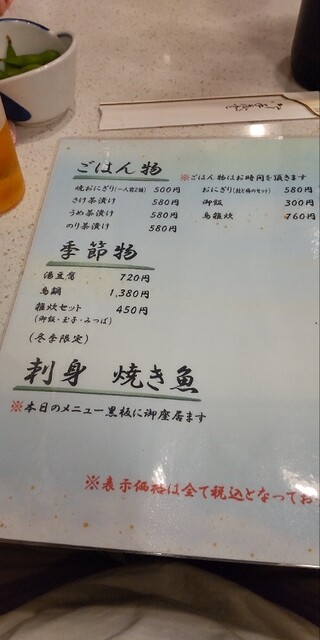 ごはん物
※ごはん物はお時間を頂きます
焼おにぎり(一人前2個) 500円
さけ茶漬け 580円
うめ茶漬け 580円
のり茶漬け 580円
おにぎり(鮭と梅のセット) 580円
御飯 300円
鳥雑炊 760円
季節物
湯豆腐 720円
鳥鍋 1,380円
雑炊セット 450円
(御飯・玉子・みつば)
(冬季限定)
刺身 焼き魚
※本日のメニュー黒板に御座居ます
※表示価格は全て税込となってお